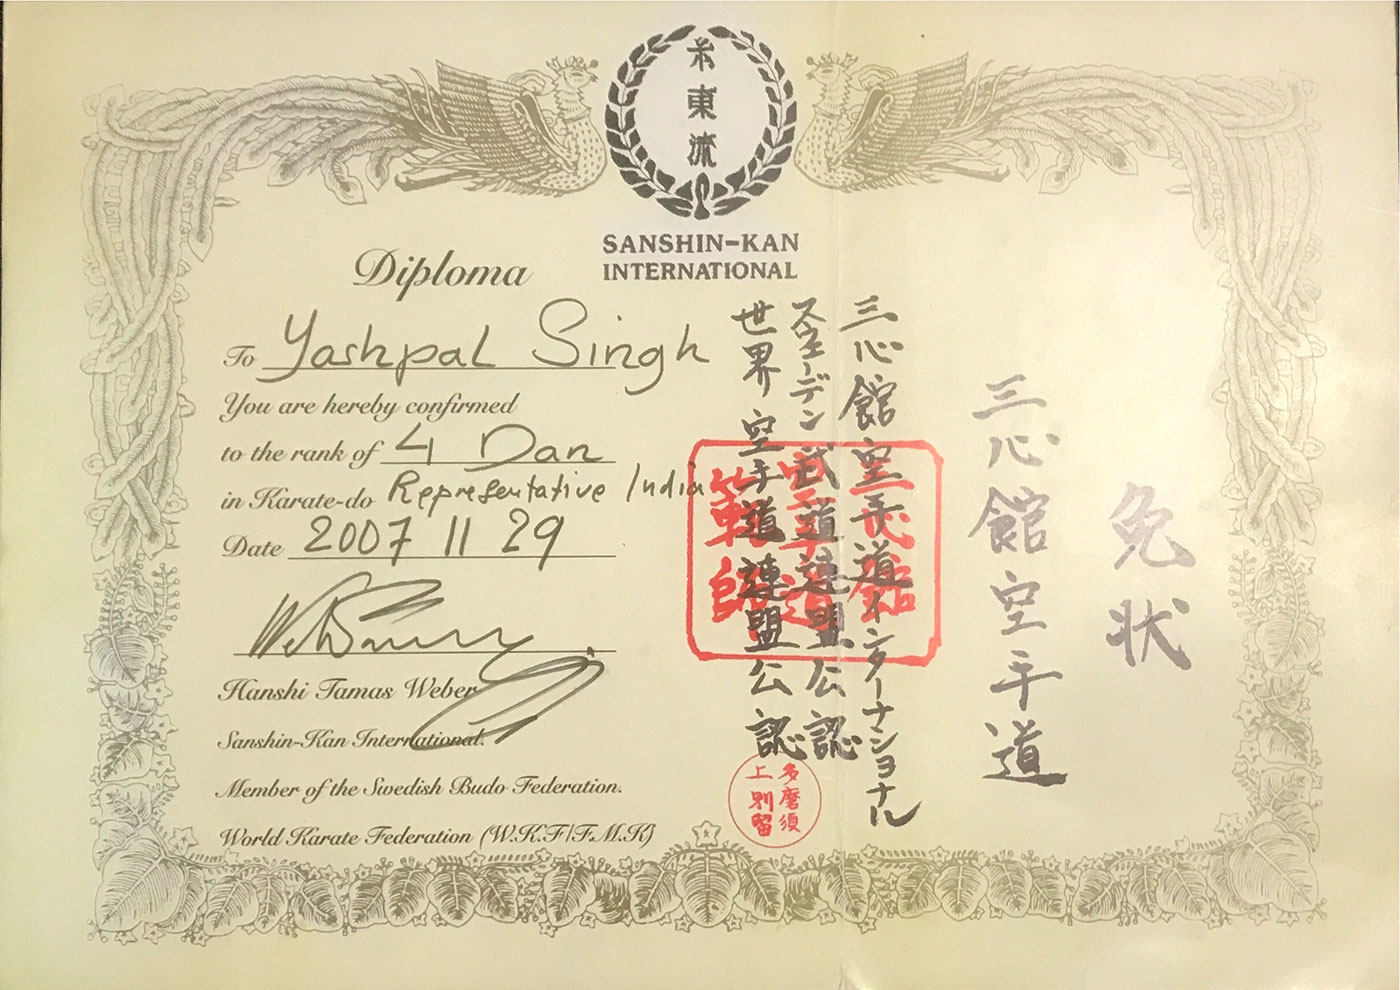 糸東流
SANSHIN-KAN
INTERNATIONAL
Diploma
To Yashpal Singh
You are hereby confirmed
to the rank of 4 Dan
in Karate-do Representative India
Date 2007 11 29
Hanshi Tamas Weber
Sanshin-Kan International.
Member of the Swedish Budo Federation.
World Karate Federation (W.K.F/F.M.K)
免状
三心館空手道
三心館空手道インターナショナル
スウェーデン武道連盟公認
世界空手道連盟公認
三心館
空手道
範師
多磨須
上別留